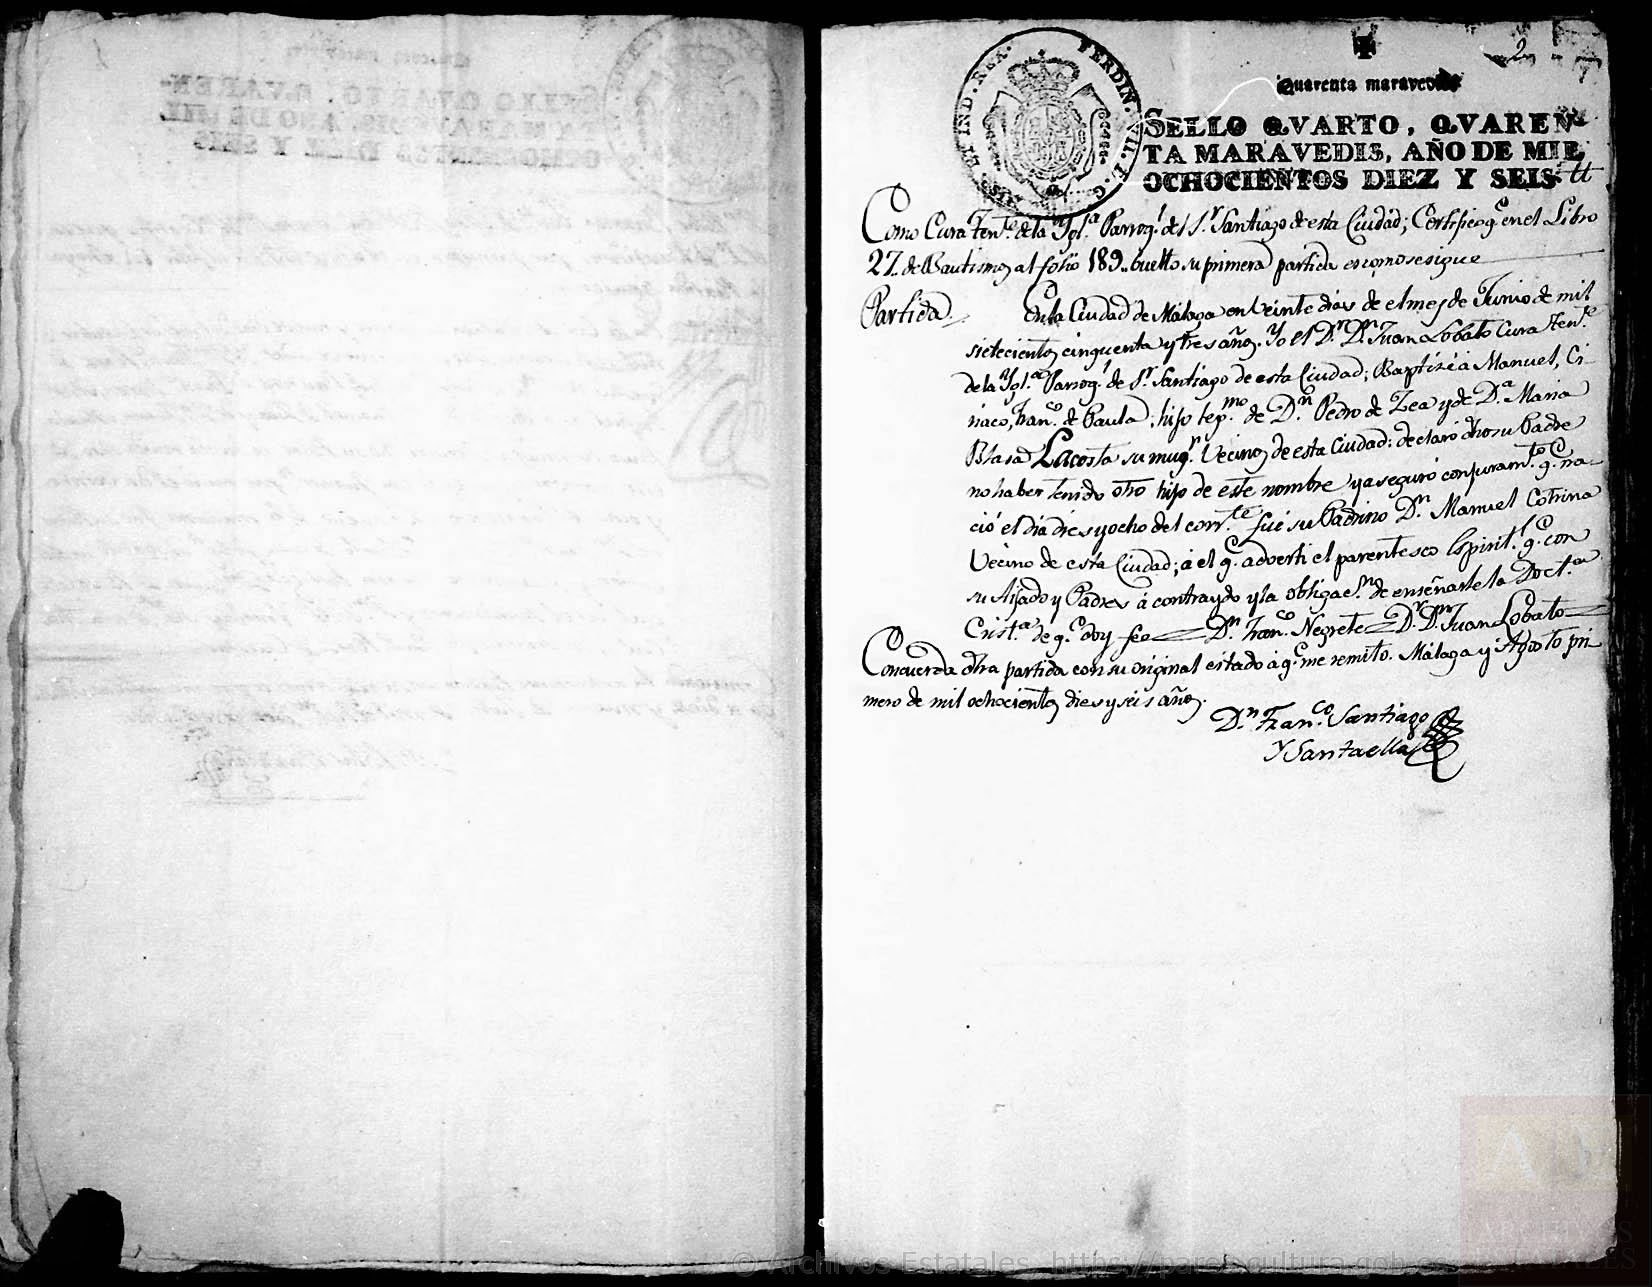 2
Quarenta maravedis
SELLO QVARTO, QVAREN-
TA MARAVEDIS, AÑO DE MIL
OCHOCIENTOS DIEZ Y SEIS
FERDIN. VII. D. G.
ET IND. REX.
Como Cura Ten.te de la Ygl.a Parroq.l del S.r Santiago de esta Ciudad; Certifico q.e en el Libro
27. de Bautismos al folio 189.. buelto su primera partida es como se sigue
Partida. En la Ciudad de Málaga en veinte dias de el mes de Junio de mil
setecientos cinquenta y tres años. Yo el D.r D.n Juan Lobato Cura Ten.te
de la Ygl.a Parroq.l de S.r Santiago de esta Ciudad; Baptizé à Manuel, Ci-
riaco, Fran.co de Paula, hijo legi.mo de D.n Pedro de Zea y de D.a Maria
Blasa Lacosta su mug.r Vecinos de esta Ciudad: declaró dho su Padre
no haber tenido otro hijo de este nombre y aseguró con juram.to q.e na-
ció el dia dies y ocho del corr.te fué su Padrino D.n Manuel Cotrina
Vecino de esta Ciudad; á el q.e adverti el parentesco Espirit.l q.e con
su Aijado y Padres á contraydo y la obligac.n de enseñarle la Doct.a
Crist.a de q.e doy fee = D.n Fran.co Negrete = D.r D.n Juan Lobato =
Concuerda dha partida con su original citado á q.e me remito. Málaga y Agosto pri-
mero de mil ochocientos dies y seis años.
D.n Fran.co Santiago
Y Santaella
© Archivos Estatales, https://pares.cultura.gob.es
AE
ARCHIVOS
ESTATALES